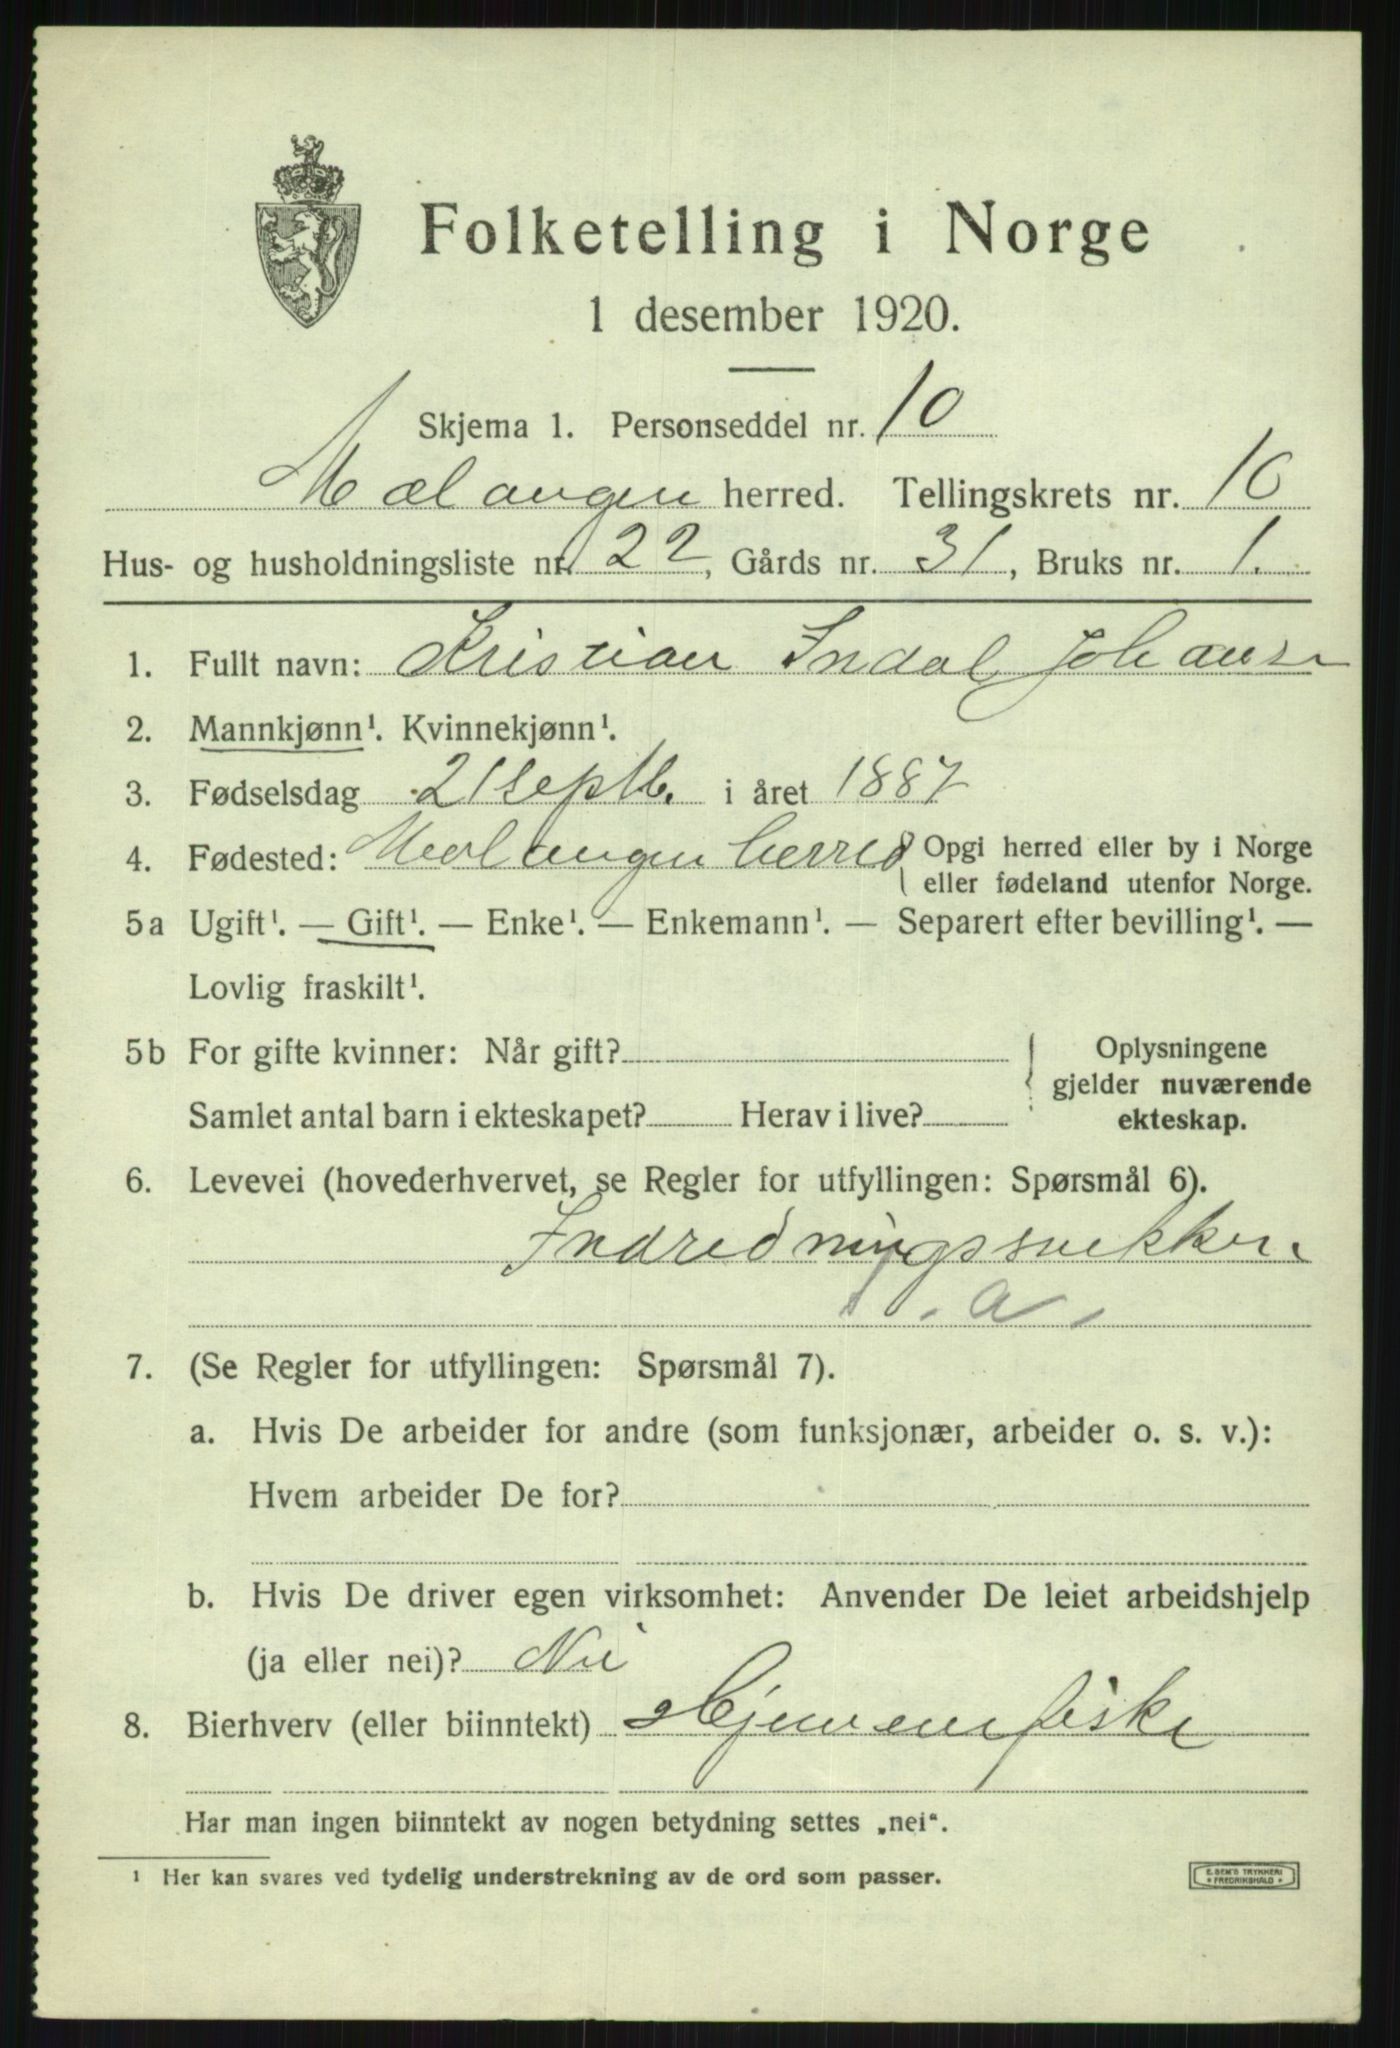 Folketelling i Norge
1 desember 1920.
Skjema 1. Personseddel nr. 10
Malangen herred. Tellingskrets nr. 10
Hus- og husholdningsliste nr. 22, Gårds nr. 31, Bruks nr. 1.
1. Fullt navn: Kristian Indal Johans
2. Mannkjønn¹. Kvinnekjønn¹.
3. Fødselsdag 21 septb. i året 1887
4. Fødested: Malangen herred { Opgi herred eller by i Norge
eller fødeland utenfor Norge.
5a Ugift¹. — Gift¹. — Enke¹. — Enkemann¹. — Separert efter bevilling¹. —
Lovlig fraskilt¹.
5b For gifte kvinner: Når gift? { Oplysningene
gjelder nuværende
Samlet antal barn i ekteskapet? Herav i live? ekteskap.
6. Levevei (hovederhvervet, se Regler for utfyllingen: Spørsmål 6).
Indredningssnekker.
a.
7. (Se Regler for utfyllingen: Spørsmål 7).
a. Hvis De arbeider for andre (som funksjonær, arbeider o. s. v.):
Hvem arbeider De for?
b. Hvis De driver egen virksomhet: Anvender De leiet arbeidshjelp
(ja eller nei)? Nei
8. Bierhverv (eller biinntekt) Hjemmefiske
Har man ingen biinntekt av nogen betydning settes „nei“.
¹ Her kan svares ved tydelig understrekning av de ord som passer.
E. SEM'S TRYKKERI
* FREDRIKSHALD *